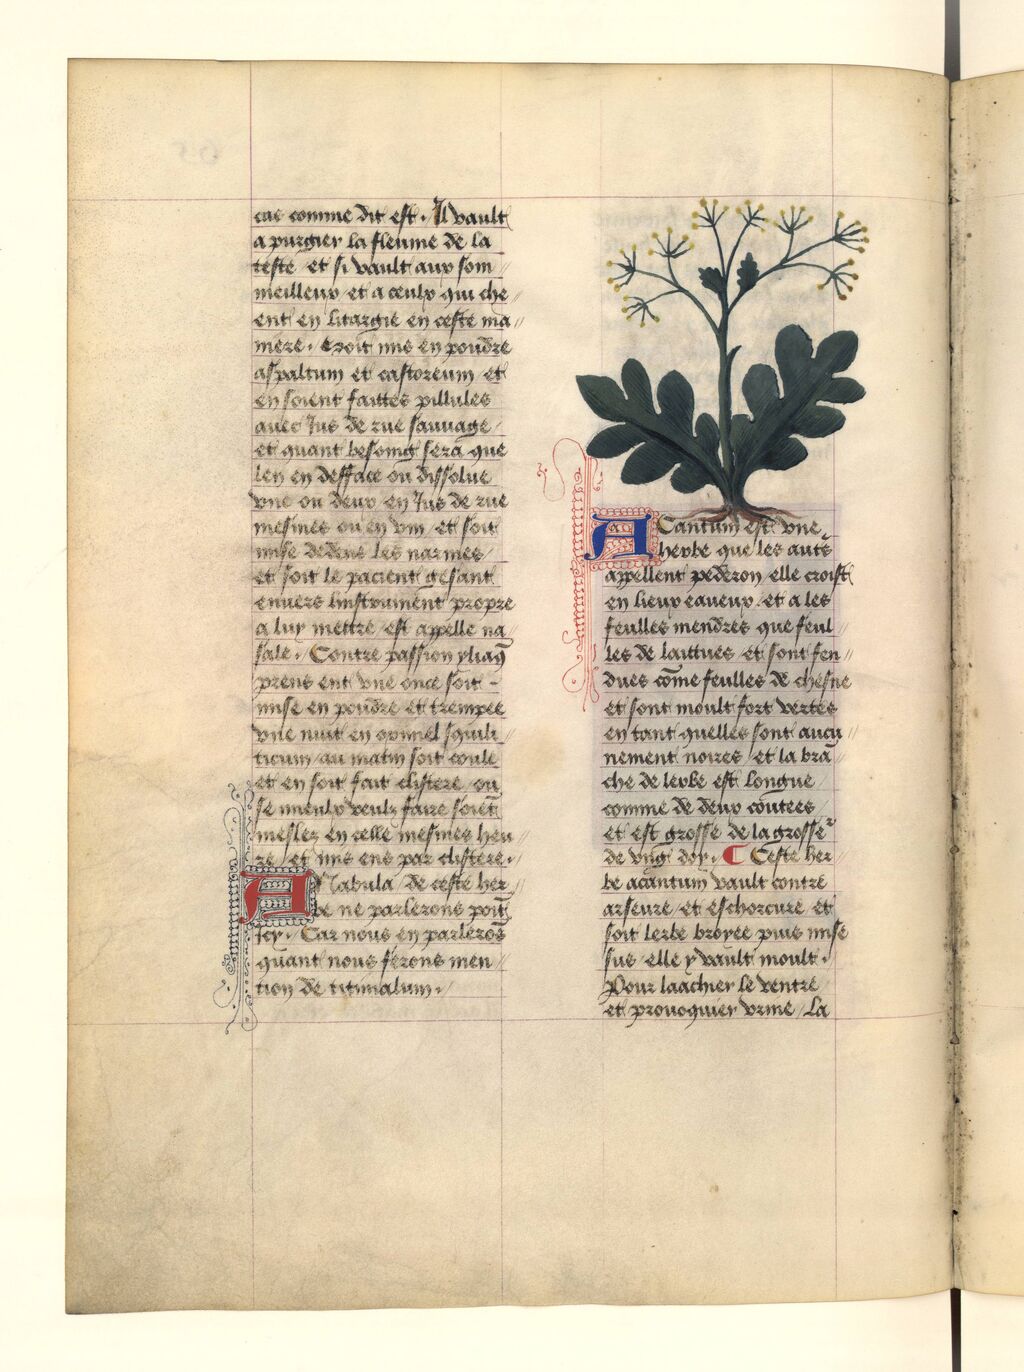 cas comme dit est. Il vault
a purgier la fleume de la
teste et si vault aux som
meilleux et a ceulx qui che
ent en litargie en ceste ma
niere. Soit mis en pouldre
aspaltum et castoreum et
en soient faittes pillules
avec Jus de rue sauvage
et quant besoing sera que
len en defface ou dissolue
vne ou deux en Jus de rue
mesmes ou en vin et soit
mise dedens les narines
et soit le pacient gesant
envers linstrument propre
a luy mettre est appelle na
sale. Contre passion yliaq̄
prens ent vne once soit
mise en pouldre et trempee
vne nuit en oximel squili
ticum au matin soit coule
et en soit fait clistere ou
se mieulx veulz faire soiēt
meslez en celle mesmes heu
re et mis ens par clistere.
Anabula de ceste her
be ne parlerons poīt
Icy. Car nous en parlerōs
quant nous ferons men
tion de titimalum.
ACantum est vne
herbe que les aut's
appellent pederon elle croist
en lieux eaueux et a les
feulles mendres que feul
les de laittues et sont fen
dues cōme feulles de chesne
et sont moult fort vertes
en tant quelles sont aucu
nement noires et la brā
che de lerbe est longue
comme de deux coutees
et est grosse de la grosse
de vng doy. ¶ Ceste her
be acantum vault contre
arseure et eschorcure et
soit lerbe broyee puis mise
sus elle y vault moult.
Pour laachier le ventre
et prouoquier vrine La